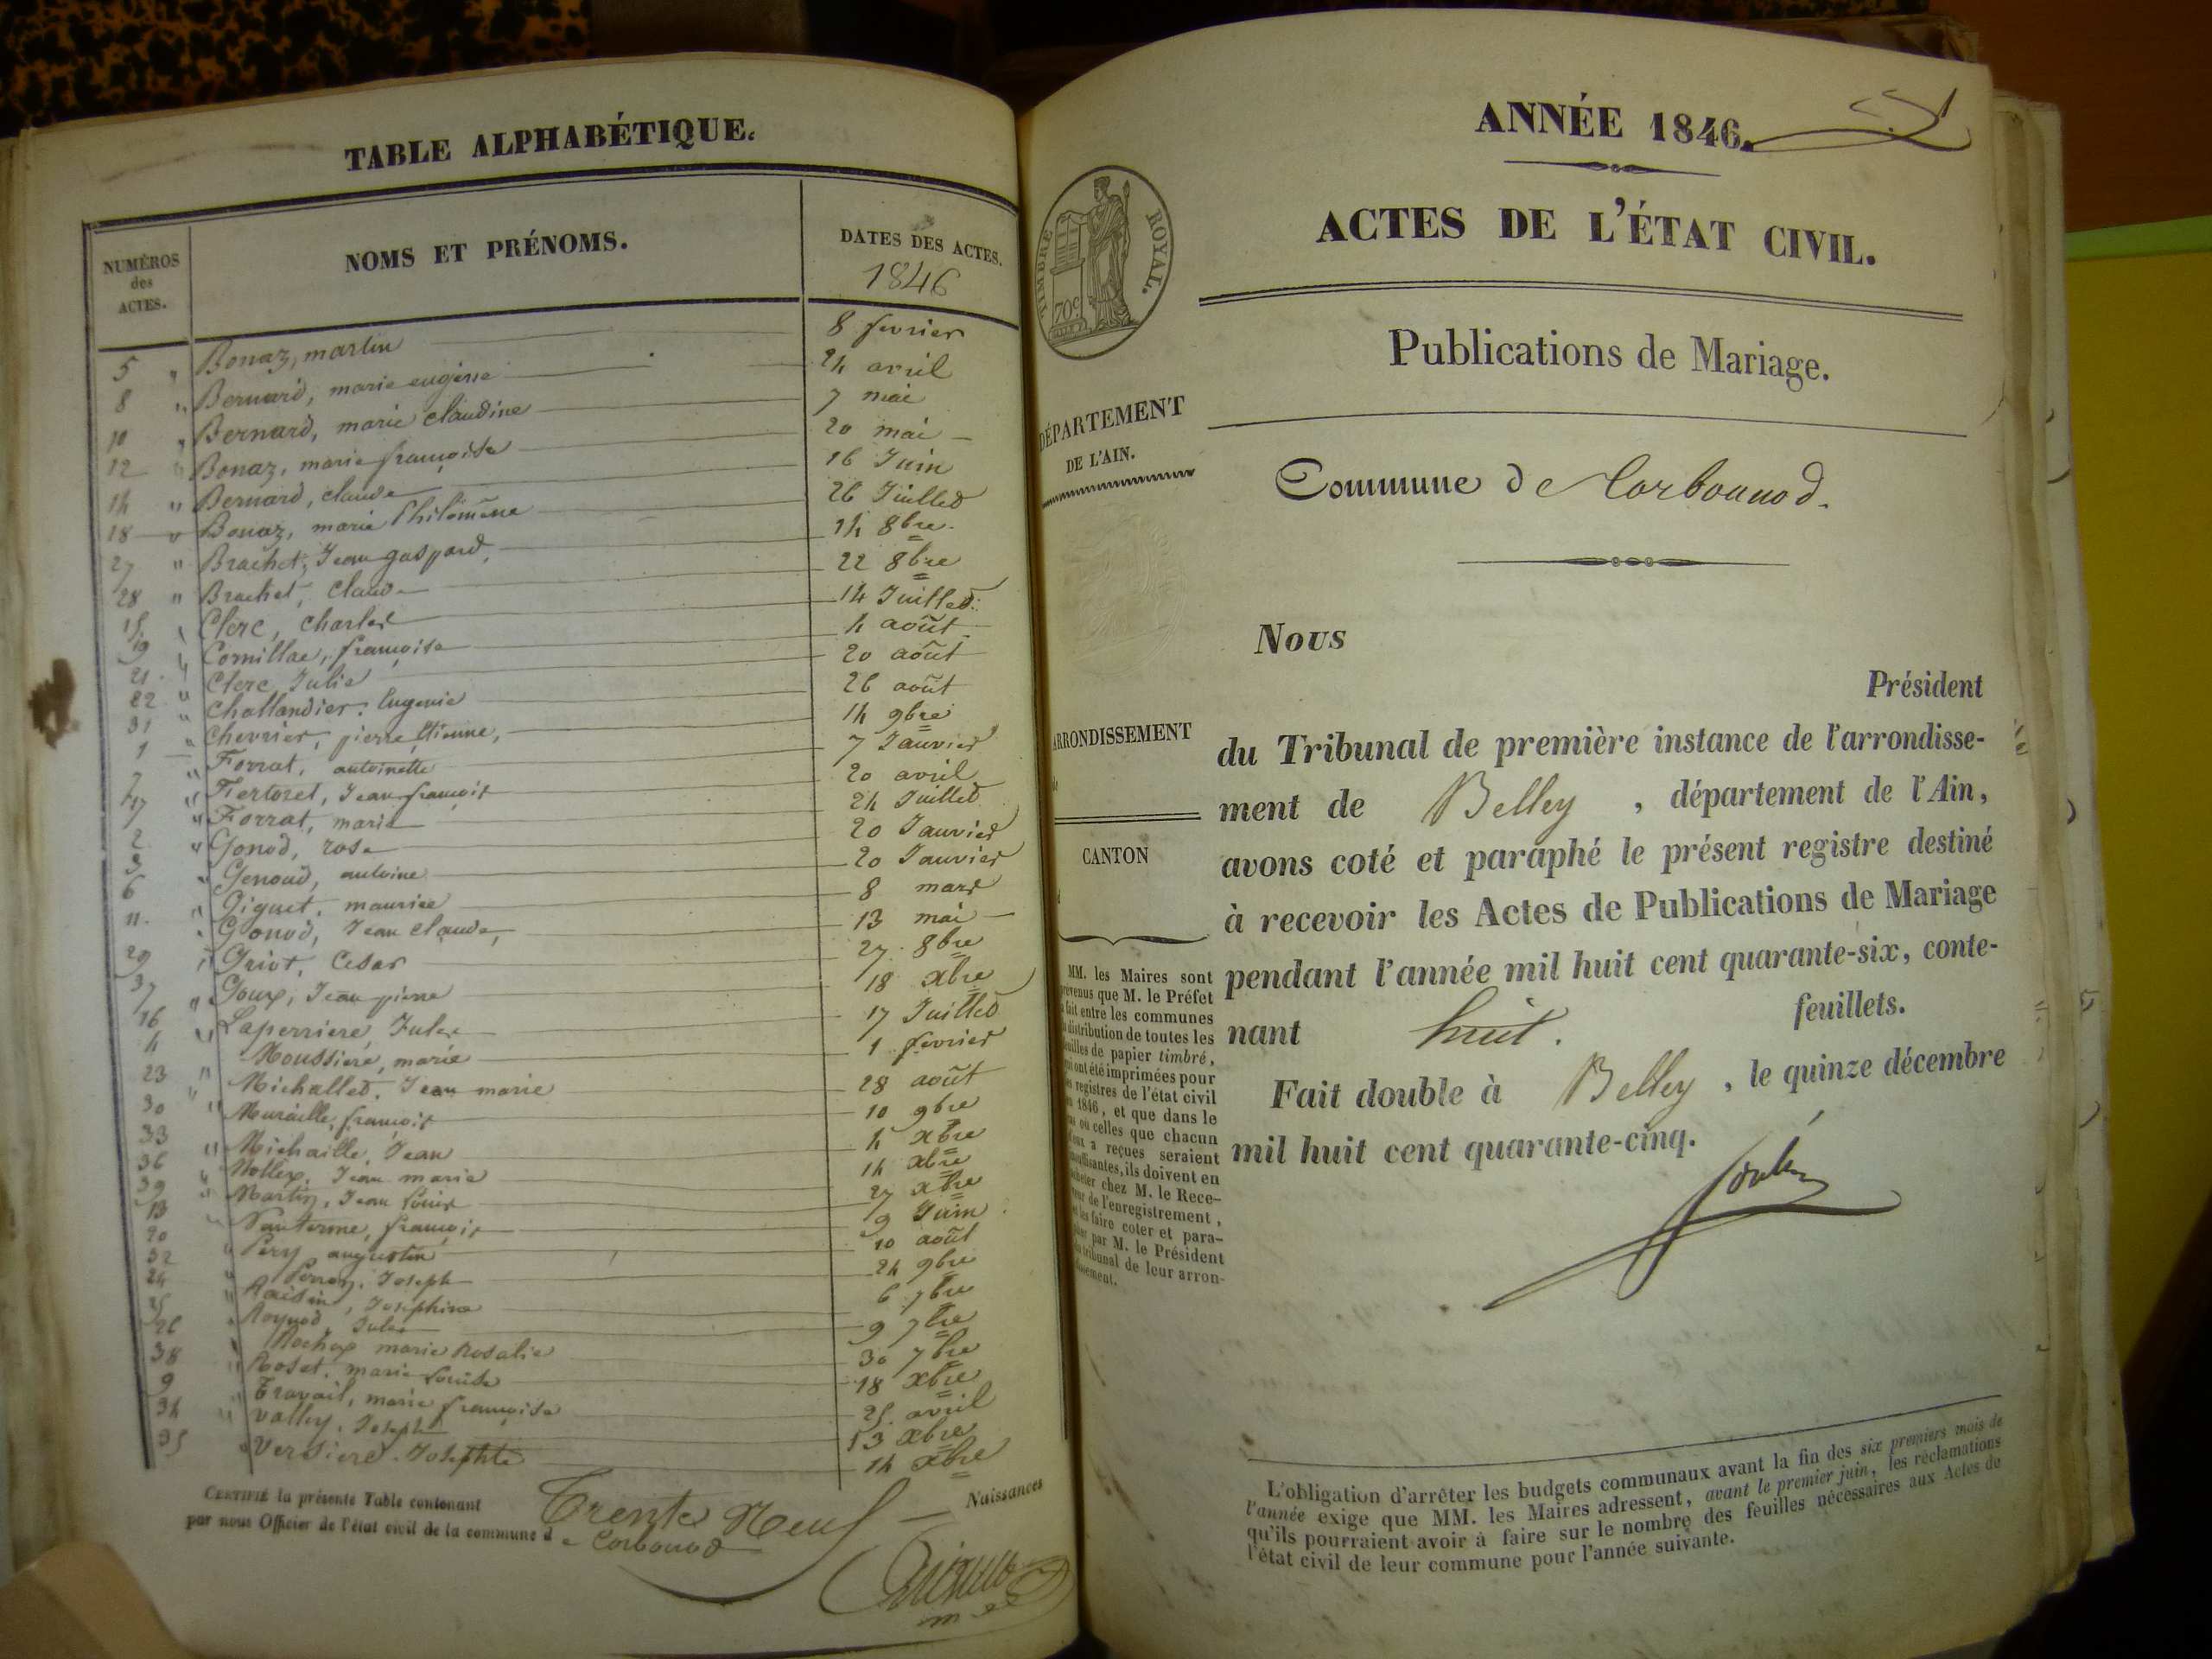 TABLE ALPHABÉTIQUE.
NUMÉROS des ACTES.
NOMS ET PRÉNOMS.
DATES DES ACTES.
1846
5 " Bonaz, martin 8 fevrier
8 " Bernard, marie eugénie 24 avril
10 " Bernard, marie claudine 7 mai
12 " Bonaz, marie françoise 20 mai
14 " Bernard, claude 16 Juin
18 " Bonaz, marie Philomène 26 Juillet
27 " Brachet, Jean gaspard 14 8bre
28 " Brachet, Claude 22 8bre
15 " Clerc, Charles 14 Juillet
19 " Cornillac, françoise 4 août
21 " Clerc Julie 20 août
22 " Challandier, Eugenie 26 août
31 " Chevrier, pierre Etienne, 14 9bre
1 Forrat, antoinette 7 Janvier
7 " Fertoret, Jean françois 20 avril
17 " Forrat, marie 24 Juillet
2 " Gonod, rose 20 Janvier
3 " Genoud, antoine 20 Janvier
6 " Giguet, maurice 8 mars
11 " Gonod, Jean Claude, 13 mai
29 " Griot, Cesar 27 8bre
37 " Goux, Jean pierre 18 xbre
16 " Laperriere, Jules 17 Juillet
4 Moussiere, marie 1 février
23 " Michallet, Jean marie 28 août
30 " Muraille, françois 10 9bre
33 " Michaille, Jean 4 xbre
36 " Mollex, Jean marie 14 xbre
39 " Martin, Jean Louis 27 xbre
13 françois 9 Juin
20 " Pery augustin 10 août
32 " Joseph 24 9bre
24 " Raisin, Josephine 6 7bre
25 " Jules 9 7bre
26 " Rochex marie Rosalie 30 7bre
38 " Roset, marie Louise 18 xbre
9 " Travail, marie françoise 25 avril
34 " Vallry, Joseph 13 xbre
35 " Joseph 14 xbre
CERTIFIÉ la présente Table contenant Trente Neuf — Naissances
par nous Officier de l'état civil de la commune d e Corbonod
ANNÉE 1846.
ACTES DE L'ÉTAT CIVIL.
TIMBRE ROYAL.
70c
Publications de Mariage.
DÉPARTEMENT
DE L'AIN.
Commune de Corbonod.
Nous
Président
ARRONDISSEMENT
du Tribunal de première instance de l'arrondisse-
ment de Belley , département de l'Ain,
CANTON
avons coté et paraphé le présent registre destiné
à recevoir les Actes de Publications de Mariage
pendant l'année mil huit cent quarante-six, conte-
nant huit. feuillets.
Fait double à Belley , le quinze décembre
mil huit cent quarante-cinq.
MM. les Maires sont
prévenus que M. le Préfet
a fait entre les communes
la distribution de toutes les
feuilles de papier timbré,
qui ont été imprimées pour
les registres de l'état civil
en 1846, et que dans le
cas où celles que chacun
d'eux a reçues seraient
insuffisantes, ils doivent en
acheter chez M. le Rece-
veur de l'enregistrement,
et les faire coter et para-
pher par M. le Président
du tribunal de leur arron-
dissement.
L'obligation d'arrêter les budgets communaux avant la fin des six premiers mois de
l'année exige que MM. les Maires adressent, avant le premier juin, les réclamations
qu'ils pourraient avoir à faire sur le nombre des feuilles nécessaires aux Actes de
l'état civil de leur commune pour l'année suivante.